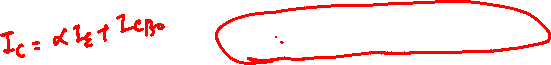 I_C = αI_E + I_CBO